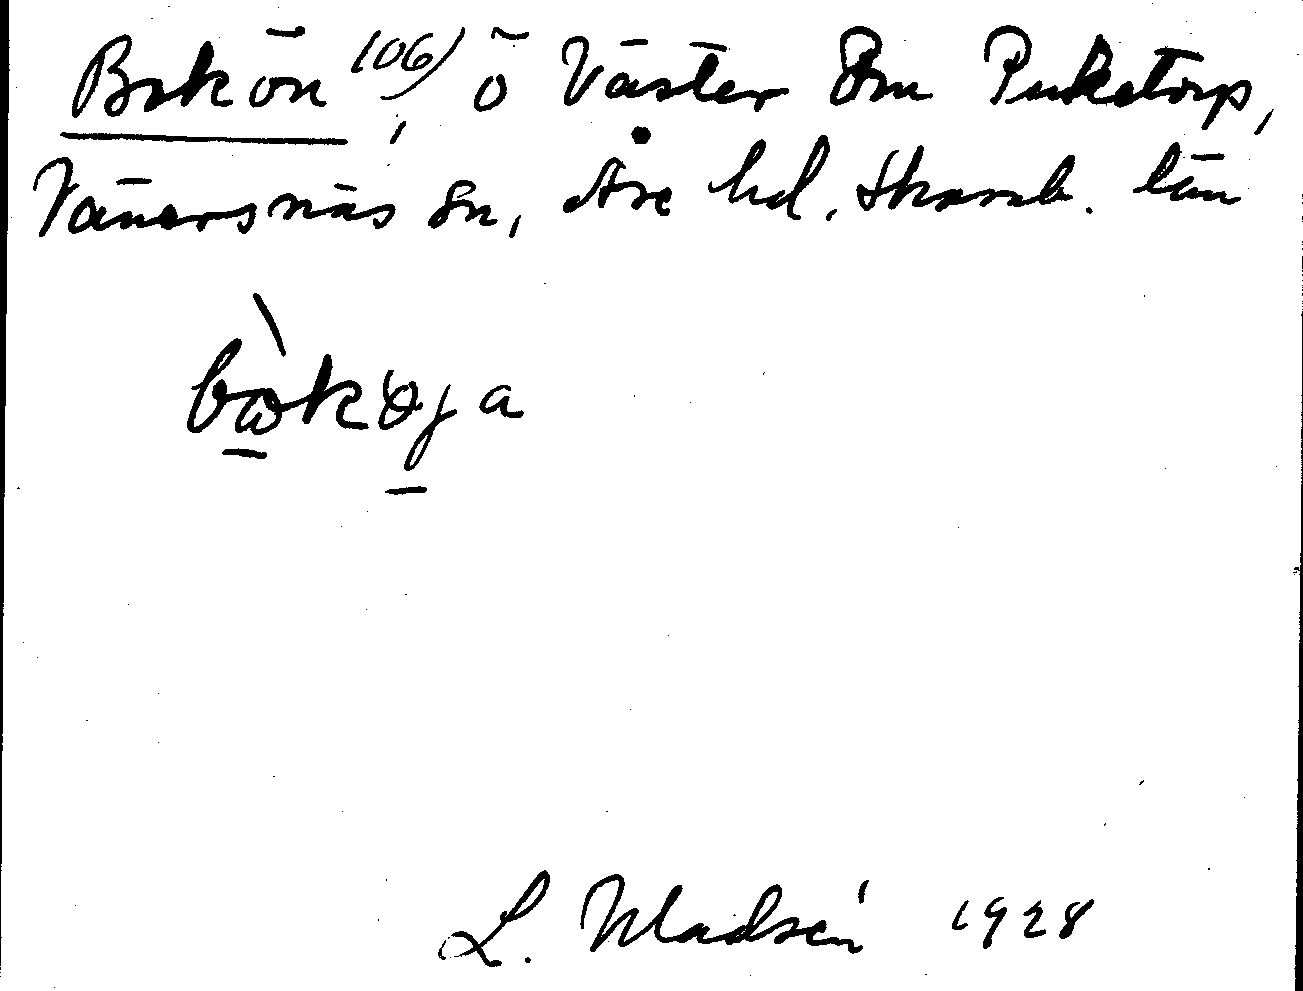 Bokön 106), ö väster om Puketorp,
Vänersnäs sn, Åse hd. Skarab. län
bωkøja
L. Modsén 1928